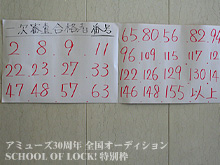 一次審査合格者番号
2. 8. 9. 11
22. 23. 27. 33
47. 48. 57. 63
65 80 56. 82. 94
96 109 115 117.
122 126 129 130
146 148 155 以上
アミューズ30周年 全国オーディション
SCHOOL OF LOCK! 特別枠